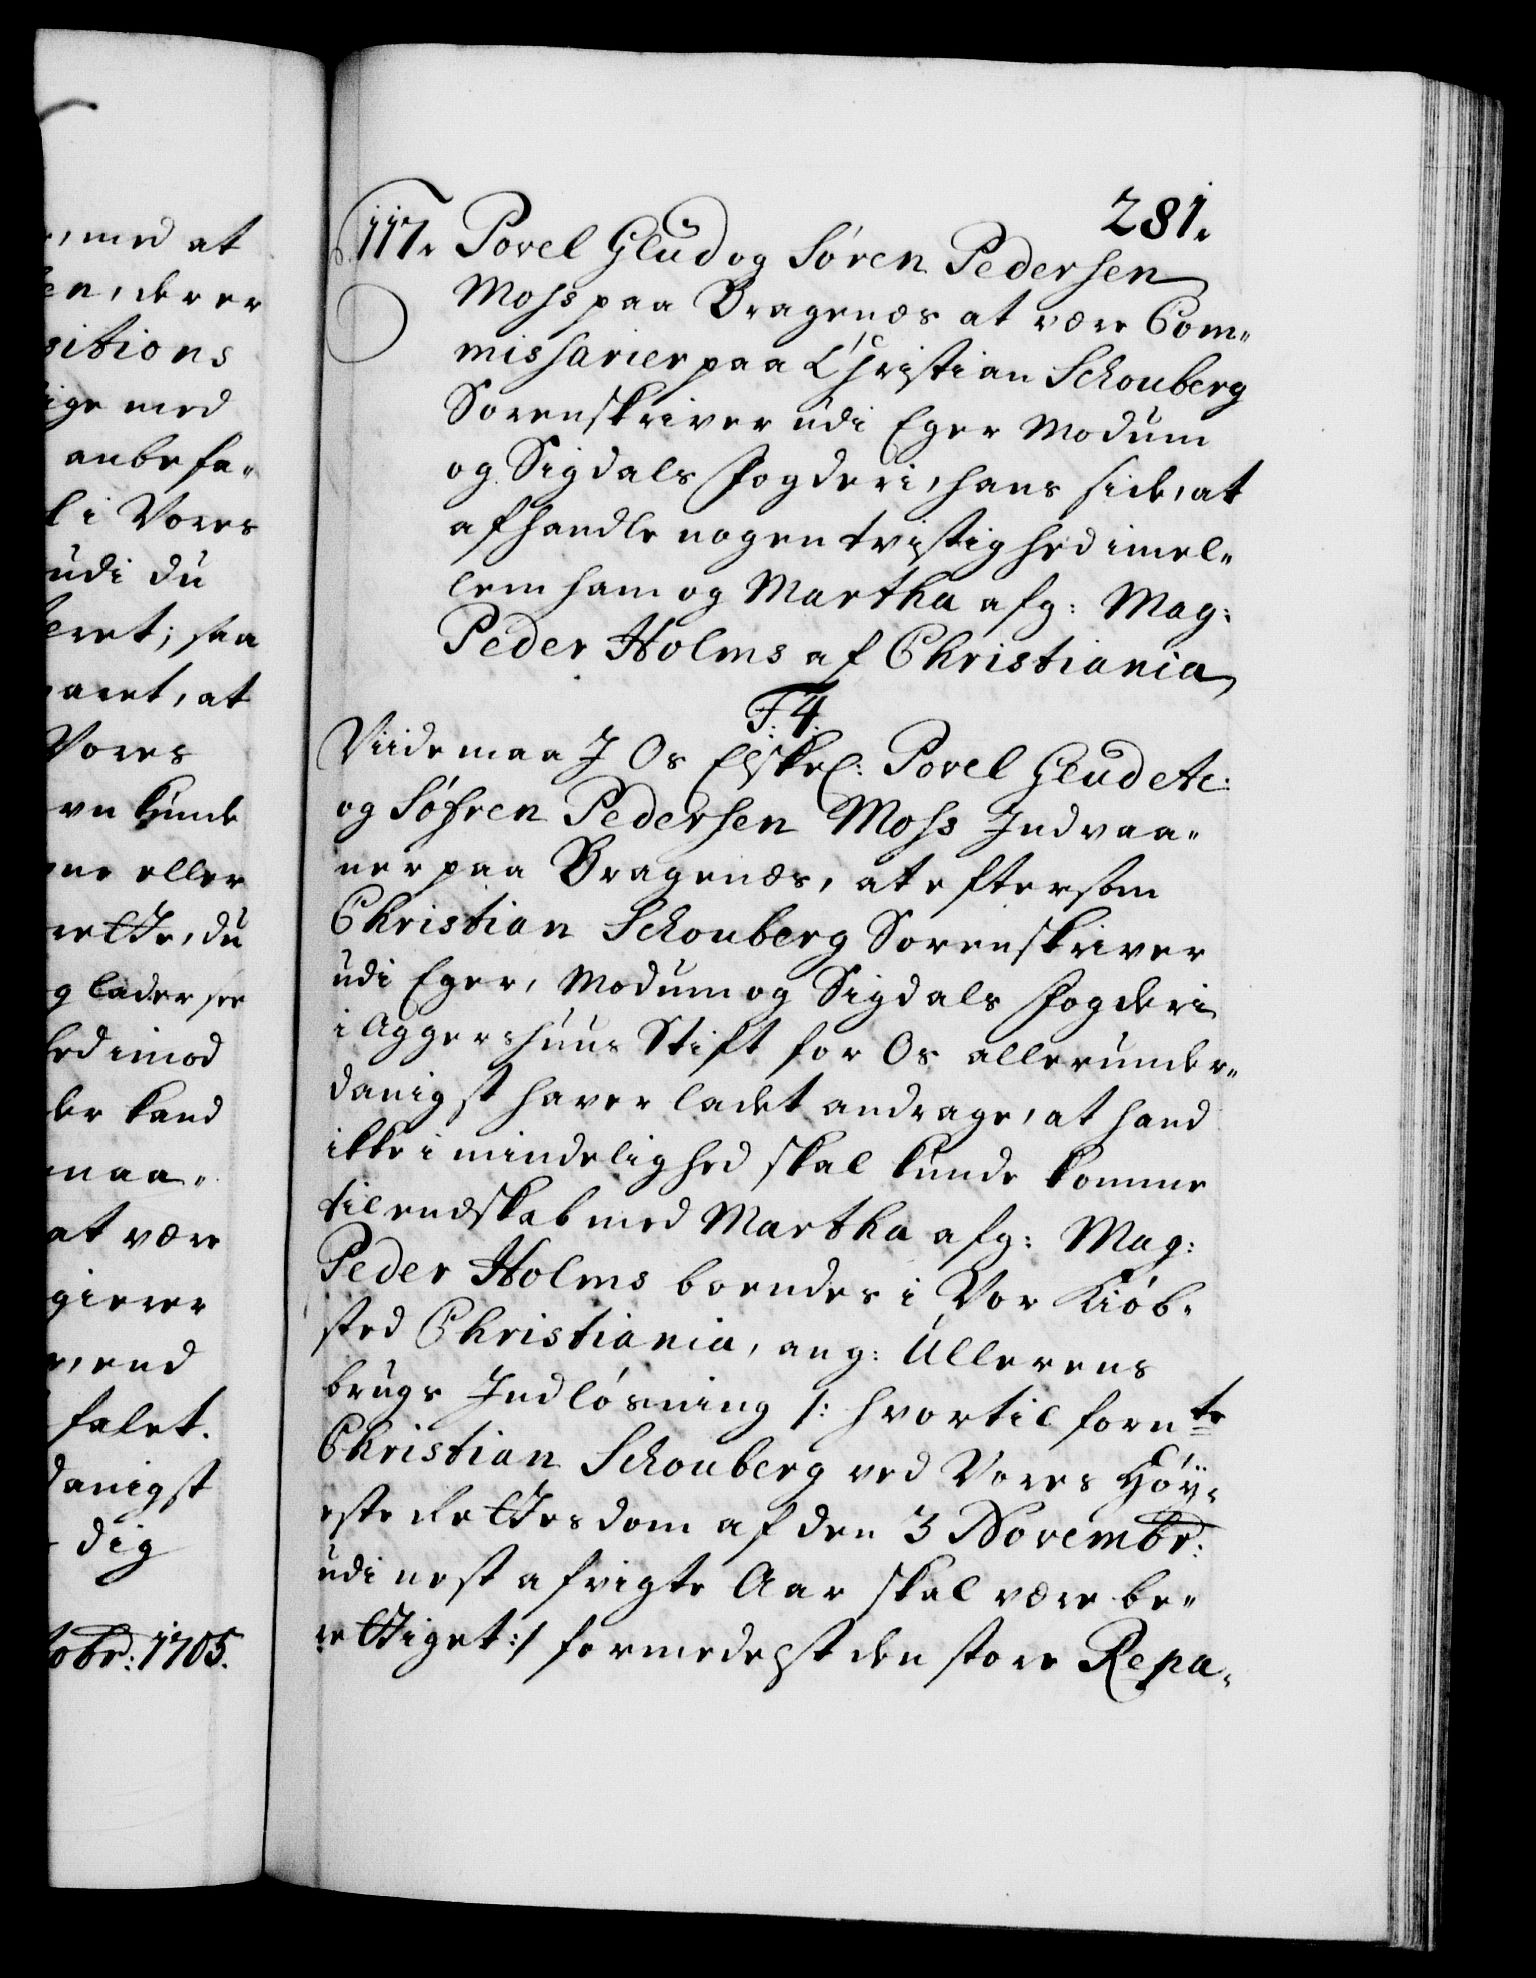 , med at
en, der er
sitions
ige med
anbefa„
l i Vores
udi du
eret; saa
aret, at
Vores
vn kunde
ne eller
rette, du
g lader see
hed imod
der kand
maa„
at være
gierer
, end
falet.
danigst
dig
tobr: 1705.
281.
117. Povel Glud og Sören Pedersen
Moss paa Bragenæs at være Com„
missarier paa Christian Schouberg
Sorenskriver udi Eger Modum
og Sigdals Fogderi, hans side, at
afhandle nogen tvistighed imel„
lem ham og Martha afg: Mag:
Peder Holms af Christiania
F. 4.
Viide maa I Os Elskel: Povel Glud etc:
og Söfren Pedersen Moss Indvaa„
ner paa Bragenæs, at eftersom
Christian Schouberg Sorenskriver
udi Eger, Modum og Sigdals Fogderi
i Aggershuus Stift for Os allerunder„
danigst haver ladet andrage, at hand
ikke i mindelighed skal kunde komme
til endskab med Martha afg: Mag:
Peder Holms boendes i Vor Kiöb„
sted Christiania, ang: Ullerens
brugs Indlösning /: hvortil fornte
Christian Schouberg ved Vores Höy„
este Rettes dom af den 3 Novembr:
udi nest afvigte Aar skal være be„
rettiget :/ formedelst den store Repa„